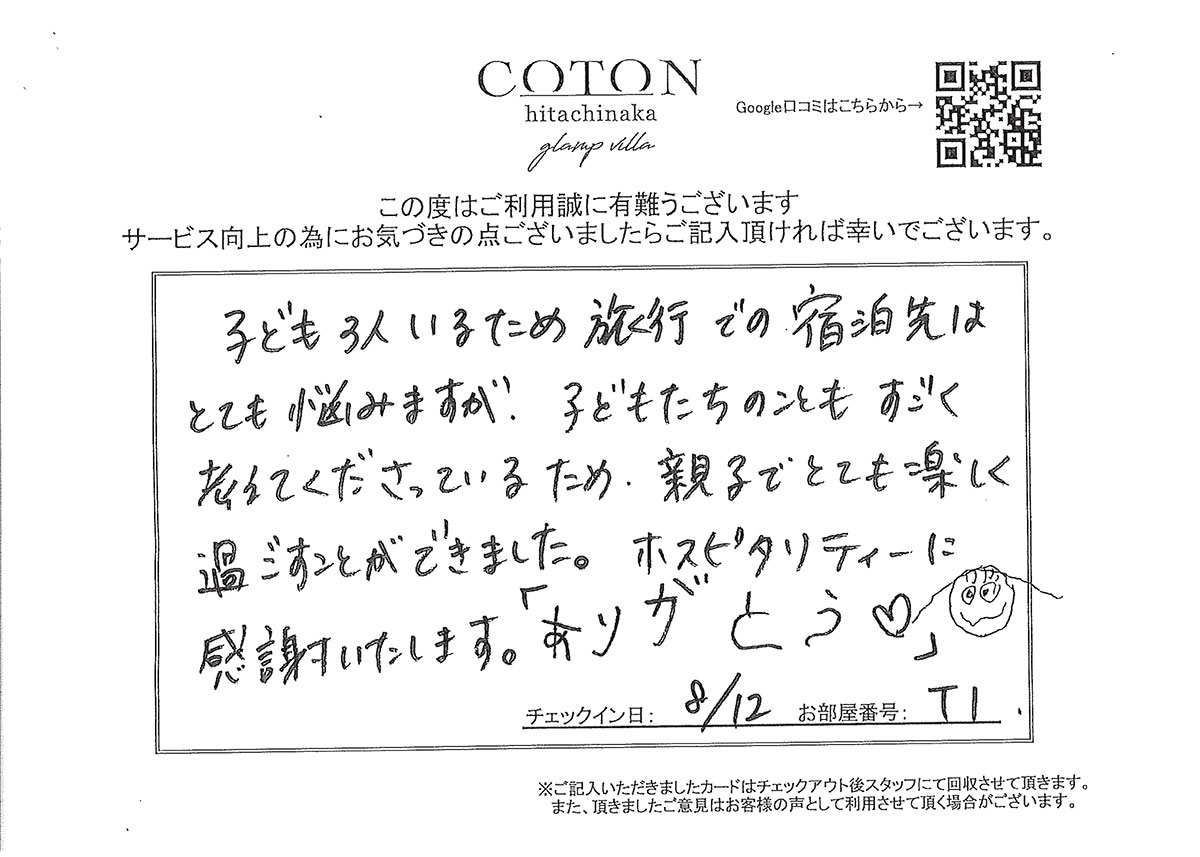 COTON
hitachinaka
glamp villa
Google口コミはこちらから→
この度はご利用誠に有難うございます
サービス向上の為にお気づきの点ございましたらご記入頂ければ幸いでございます。
子ども3人いるため旅行での宿泊先は
とても悩みますが、子どもたちのことも すごく
考えてくださっているため、親子でとても楽しく
過ごすことができました。ホスピタリティーに
感謝いたします。「ありがとう♡」
チェックイン日： 8/12 お部屋番号： T1
※ご記入いただきましたカードはチェックアウト後スタッフにて回収させて頂きます。
また、頂きましたご意見はお客様の声として利用させて頂く場合がございます。